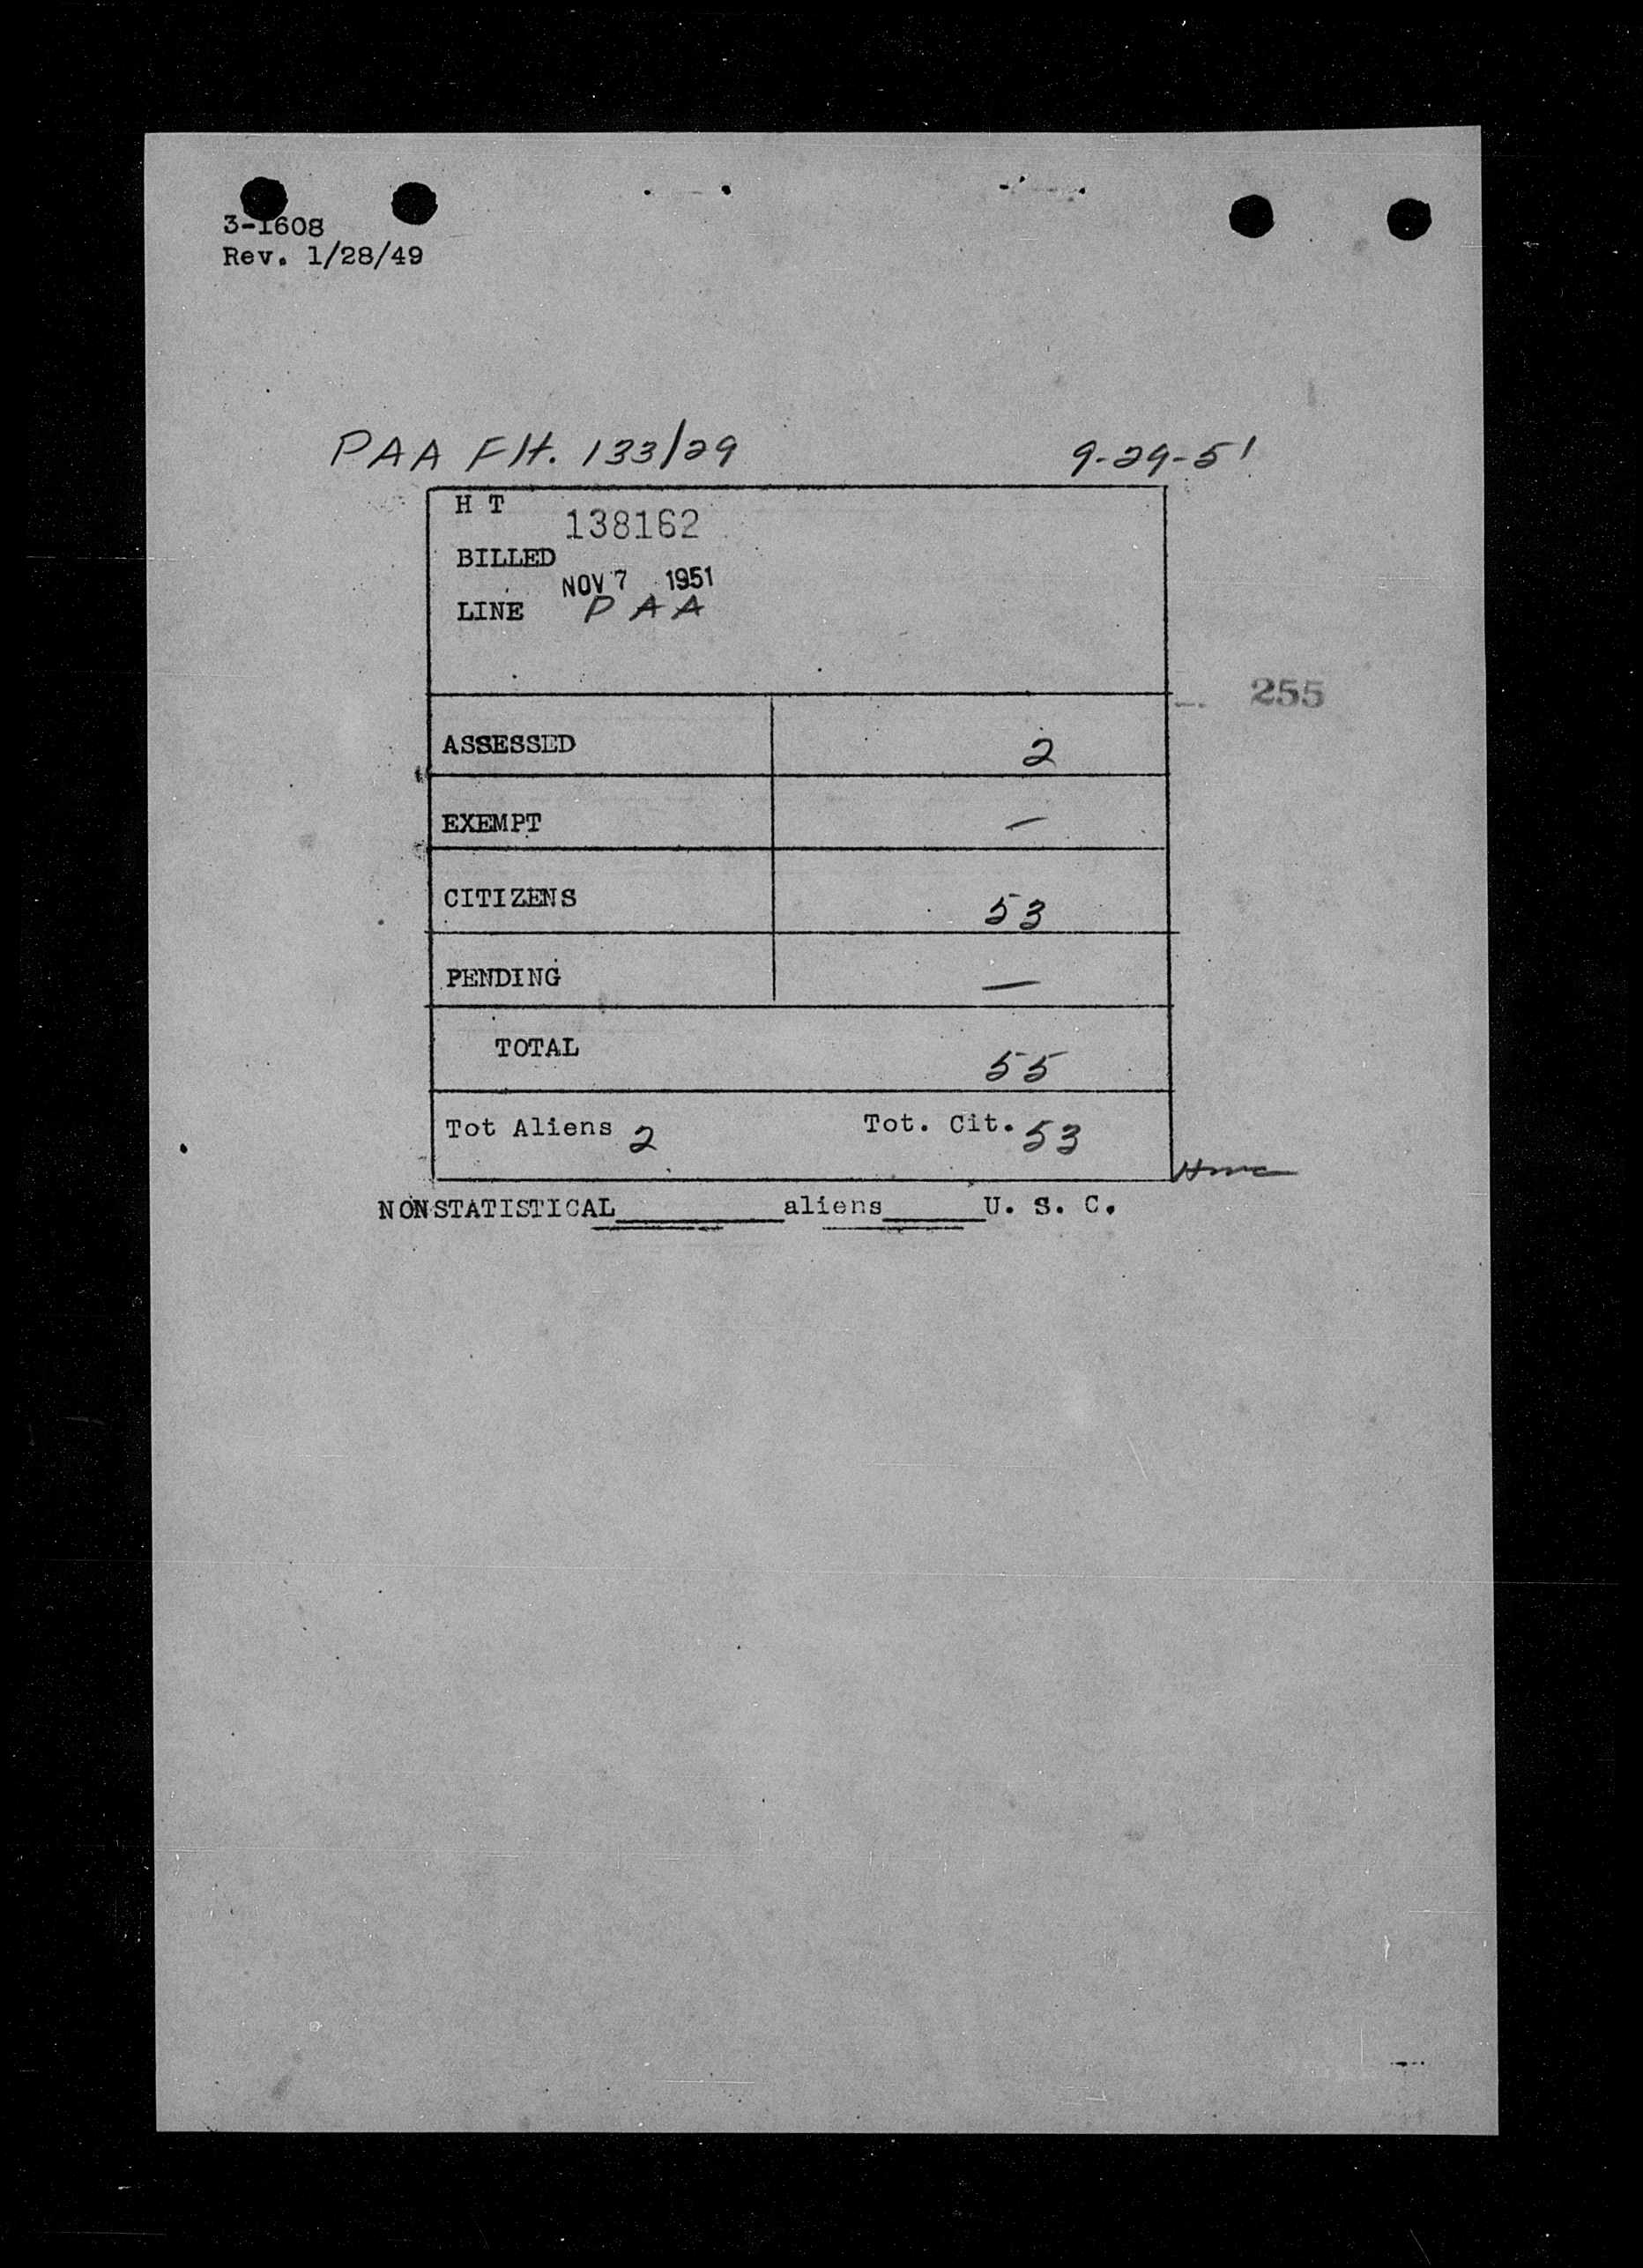 3-1608
Rev. 1/28/49
PAA Flt. 133/29 9-29-51
H T 138162
BILLED NOV 7 1951
LINE PAA
255
ASSESSED 2
EXEMPT —
CITIZENS 53
PENDING —
TOTAL 55
Tot Aliens 2 Tot. Cit. 53
NONSTATISTICAL________aliens_____U. S. C.